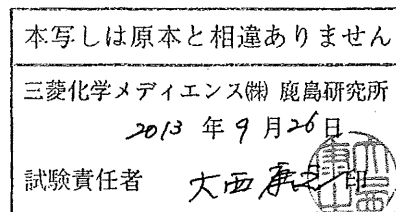 本写しは原本と相違ありません
三菱化学メディエンス㈱ 鹿島研究所
2013 年 9 月 26 日
試験責任者 大西康之 印